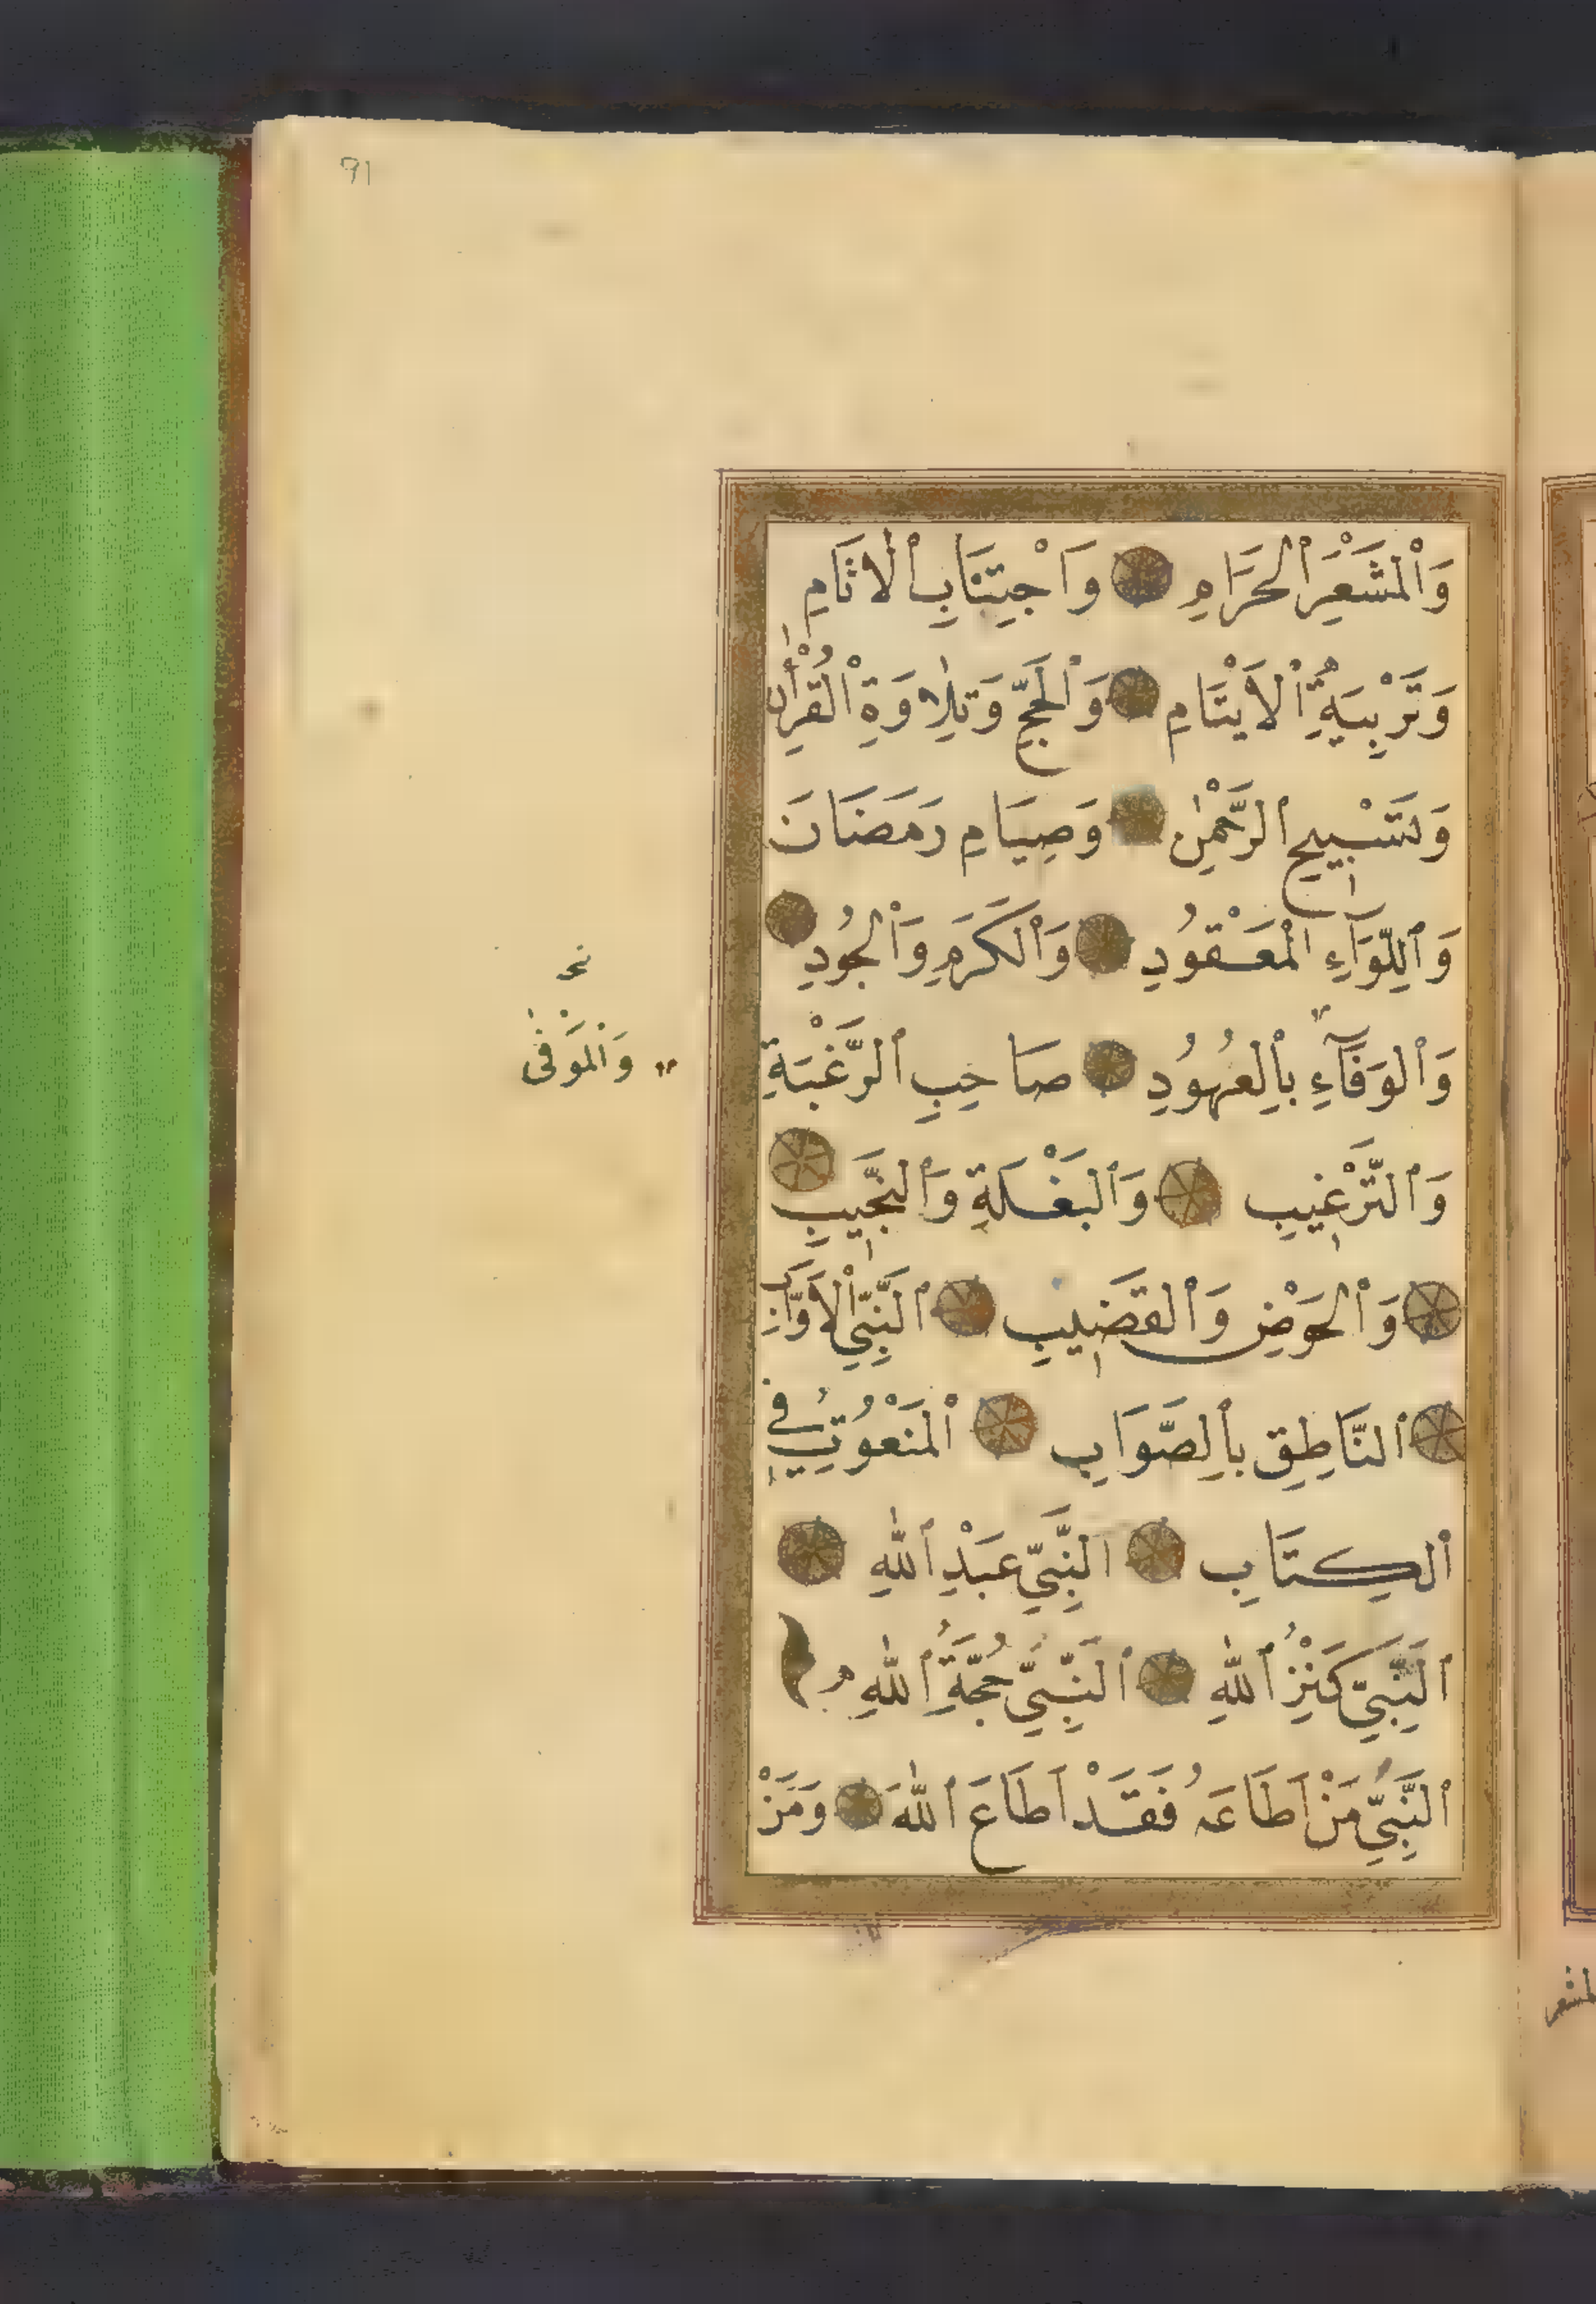 91
وَالْمَشْعَرِ الْحَرَامِ وَاجْتِنَابِ الْاٰثَامِ
وَتَرْبِيَةِ الْاَيْتَامِ وَالْحَجِّ وَتِلَاوَةِ الْقُرْاٰنِ
وَتَسْبِيحِ الرَّحْمٰنِ وَصِيَامِ رَمَضَانَ
وَاللِّوَآءِ الْمَعْقُودِ وَالْكَرَمِ وَالْجُودِ
وَالْوَفَآءِ بِالْعُهُودِ صَاحِبِ الرَّغْبَةِ
وَالْمُوَفِّى
وَالتَّرْغِيبِ وَالْبَغْلَةِ وَالنَّجِيبِ
وَالْحَوْضِ وَالْقَضِيبِ النَّبِيِّ الْاَوَّابِ
النَّاطِقِ بِالصَّوَابِ الْمَنْعُوتِ فِي
الْكِتَابِ النَّبِيِّ عَبْدِ اللّٰهِ
النَّبِيِّ كَنْزِ اللّٰهِ النَّبِيِّ حُجَّةِ اللّٰهِ
النَّبِيِّ مَنْ اَطَاعَهُ فَقَدْ اَطَاعَ اللّٰهَ وَمَنْ